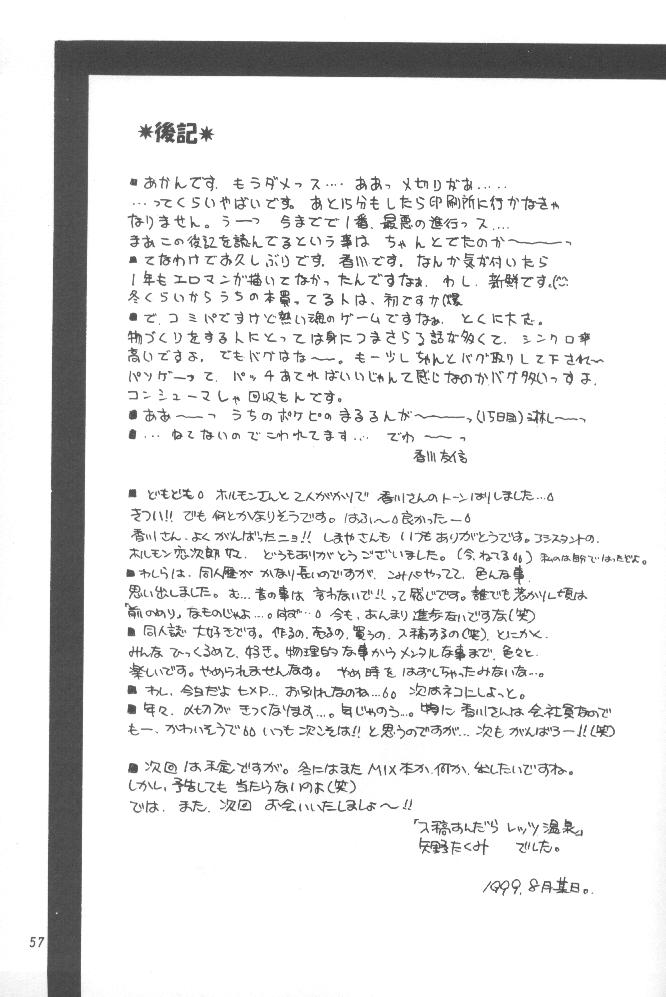 *後記*
■あかんです。もうダメっス‥‥ああっ〆切りがぁ‥‥‥
‥‥ってくらいやばいです。あと15分もしたら印刷所に行かなきゃ
なりません。うーっ 今までで1番、最悪の進行っス‥‥
まあこの後記を読んでるという事は ちゃんとでたのか〜〜〜っ
■てなわけでお久しぶりです。香川です。なんか気が付いたら
1年もエロマンガ描いてなかったんですなぁ。わし。新鮮です。
冬くらいからうちの本買ってる人は、初ですか(爆
■で、コミパですけど熱い魂のゲームですなぁ。とくに大志。
物づくりをする人にとっては身につまさらる話が多くて、シンクロ率
高いですよ。でもバグはな〜〜。もーツしちゃんとバグ取りして下され〜
パソゲーって、パッチあてればいいじゃんて感じなのかバグ多いっすよ。
コンシューマじゃ回収もんです。
■ああ〜〜っ うちのポケピのまるるんが〜〜〜っ(15日目)淋し〜〜っ
■‥‥ねてないのでこわれてます‥‥ でわ 〜〜っ
香川友信
■どもども。ホルモンさんと2人がかりで香川さんのトーンはりしました‥‥。
きつい!!でも何とかなりそうです。はふぅ〜。良かったー。
香川さん、よくがんばったニョ!!しまやさんもいつもありがとうです。アシスタントの、
ホルモン恋次郎 どうもありがとうございました。(今、ねてる。) 私のは自分ではったどよ。
■わしらは、同人歴がかなり長いのですが、こみパやってて、色んな事、
思い出しました。む‥‥昔の事は言わないで!!って感じです。誰でも若かりし頃は
「前のめり」なものじゃよ‥‥。はず‥‥。今も、あんまり進歩ないですな(笑)
■同人誌 大好きです。作るの、売るの、買うの、入稿するの(笑)、とにかく、
みんな ひっくるめて、好き。物理的な事からメンタルな事まで、色々と、
楽しいです。やめられませんなぁ。 やめ時をはずしちゃったみたいな‥‥。
■わし、今日だよ お別れなのね‥‥。次はネコにしよっと。
■年々、〆切がきつくなります‥‥。年じゃのう‥‥。特に香川さんは会社員なので
もー、かわいそうで。いつも次こそは!!と思うのですが‥‥次もがんばろー!!(笑)
■次回は未定ですが。冬にはまたMIX本か何か、出したいですね。
しかし、予告しても当たらないのよ(笑)
では、また、次回お会いいたしましょ〜!!
「入稿すんだら レッツ温泉」
矢野たくみ でした。
1999.8月某日。
57